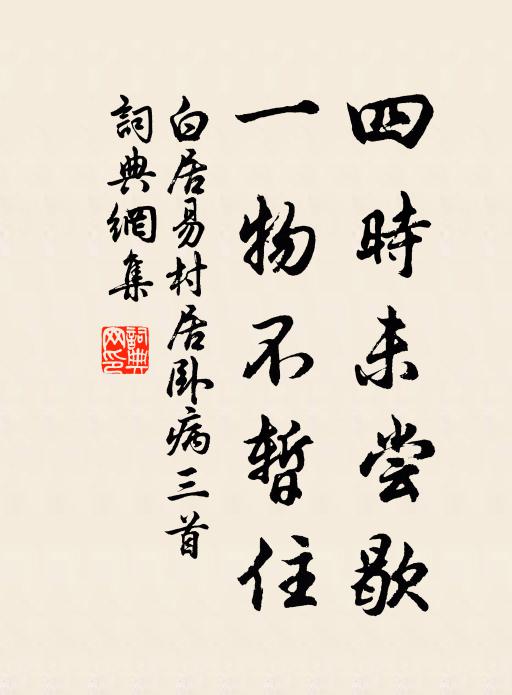 四時未尝歇
一物不暫住
白居易村居卧病三首
詞典網集
詞典
网印